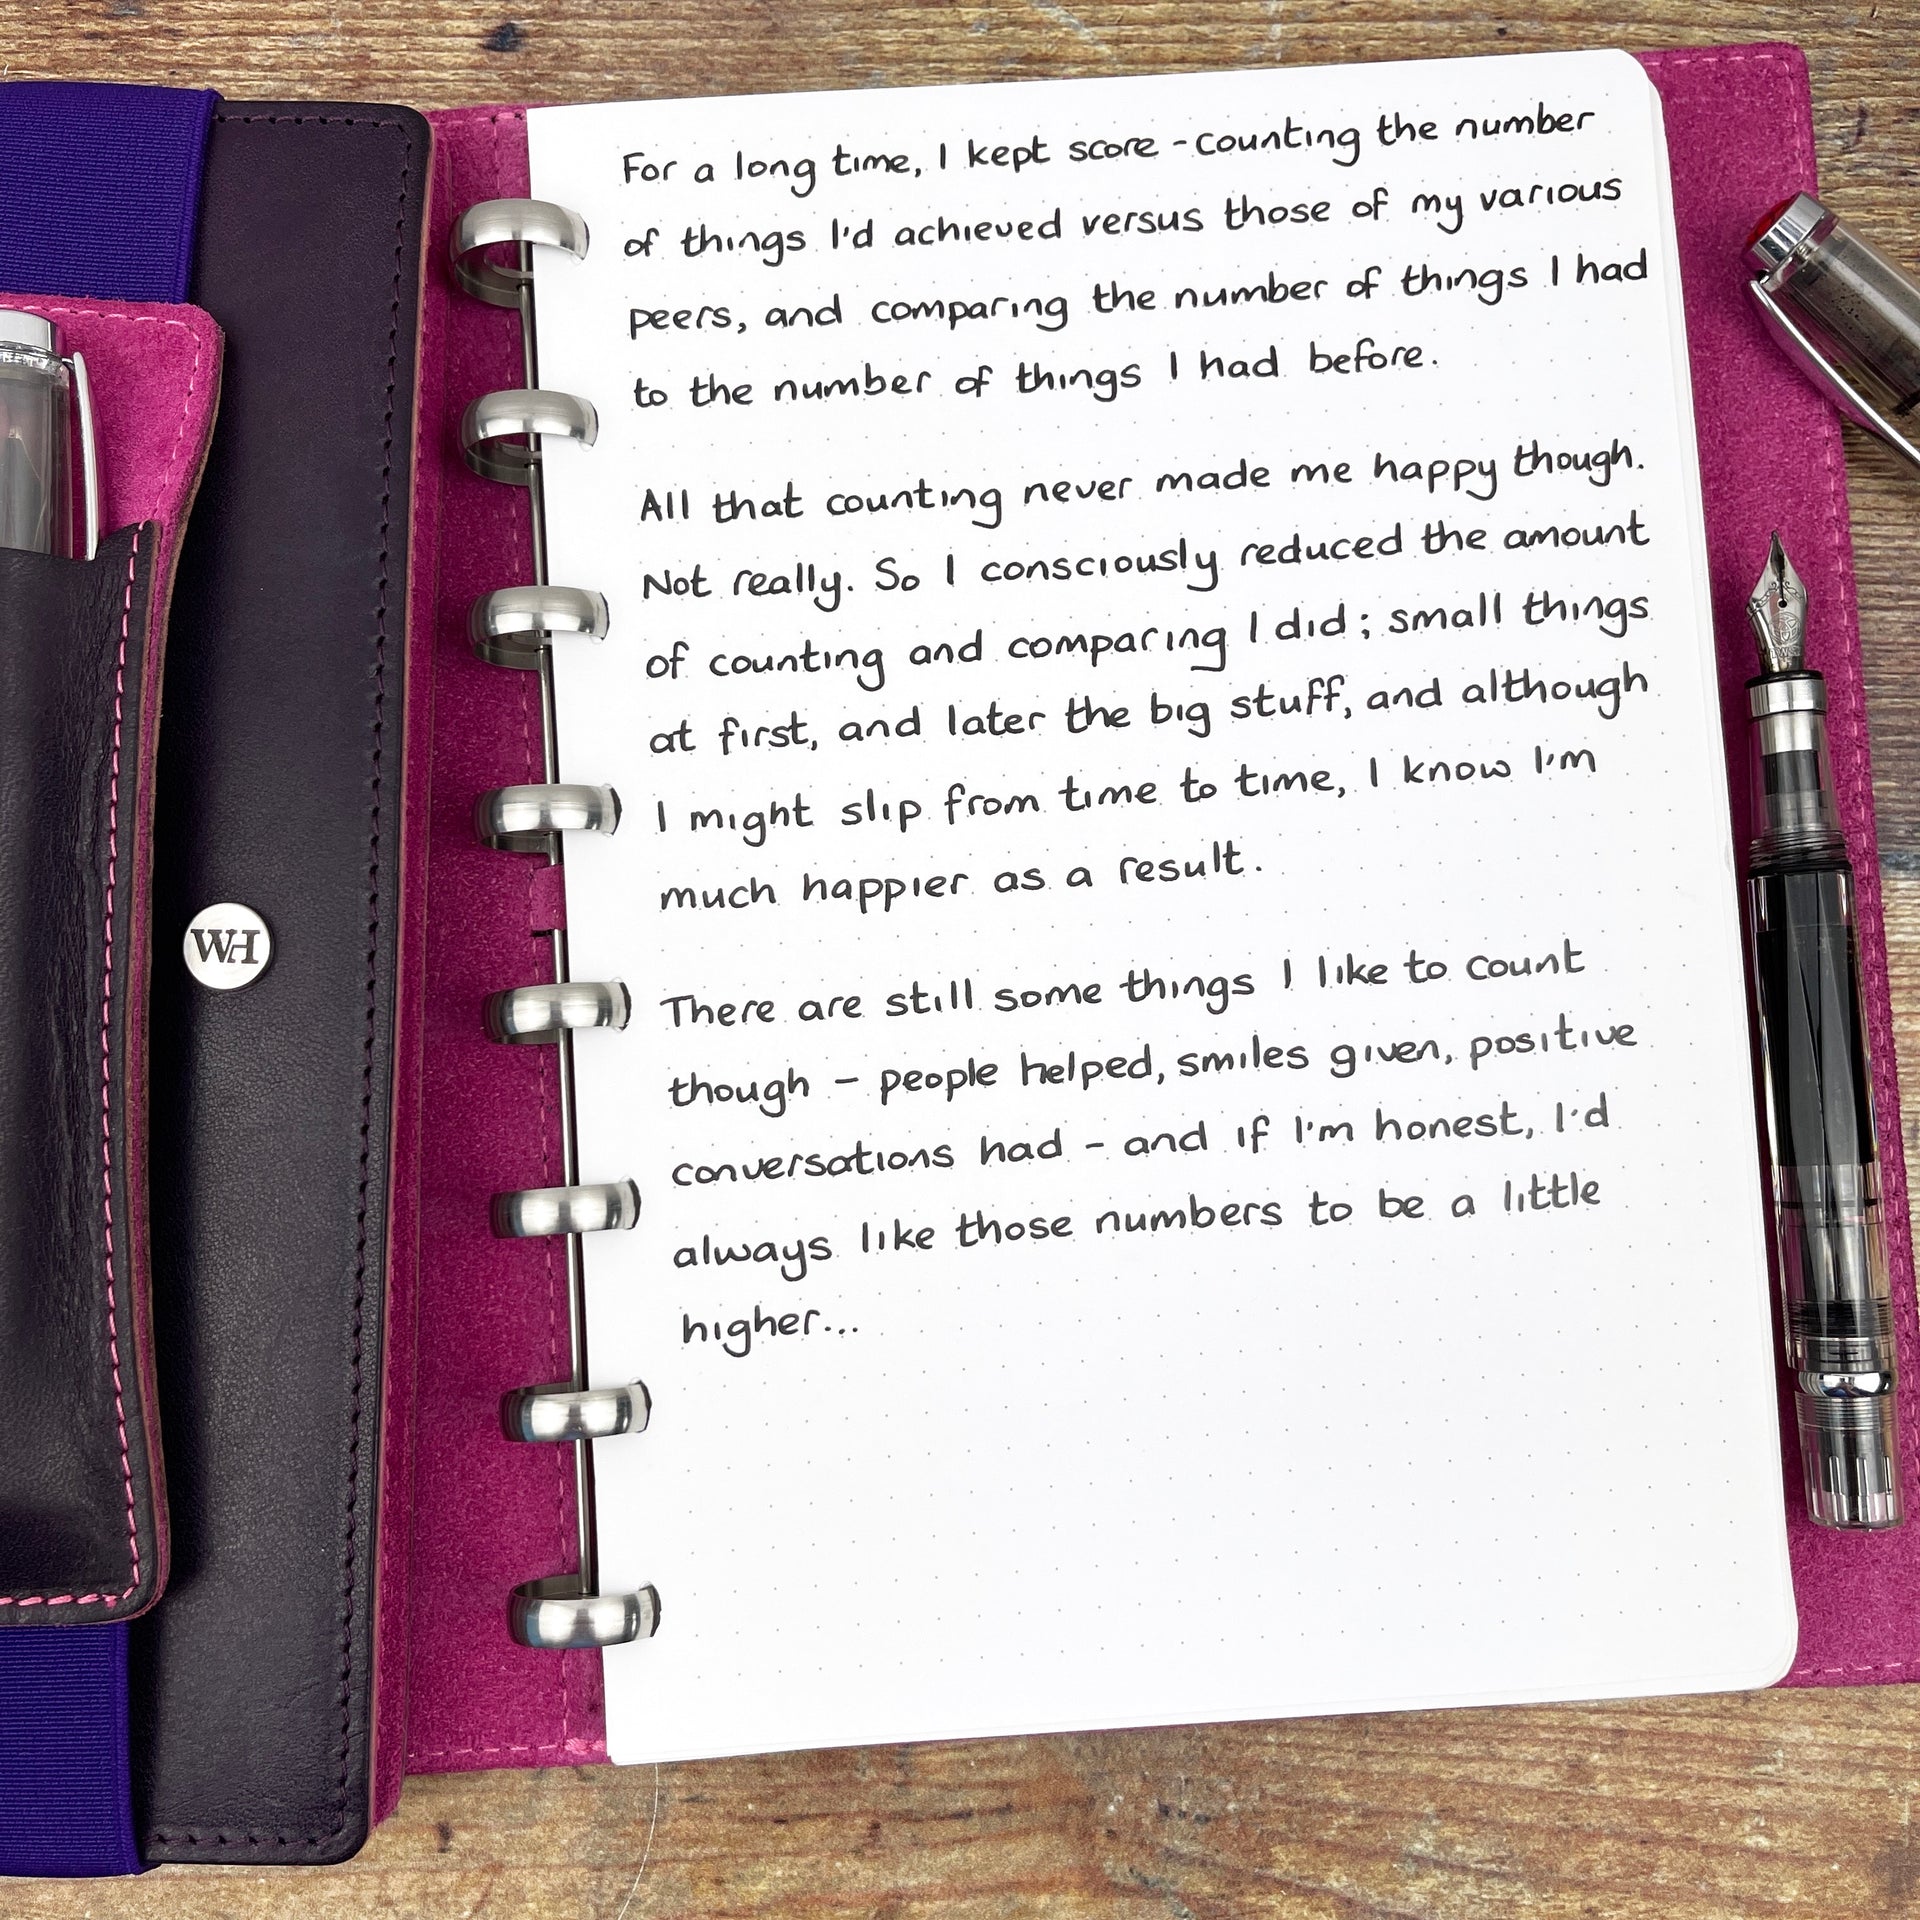 For a long time, I kept score - counting the number
of things I'd achieved versus those of my various
peers, and comparing the number of things I had
to the number of things I had before.
All that counting never made me happy though.
Not really. So I consciously reduced the amount
of counting and comparing I did; small things
at first, and later the big stuff, and although
I might slip from time to time, I know I'm
much happier as a result.
There are still some things I like to count
though – people helped, smiles given, positive
conversations had – and if I'm honest, I'd
always like those numbers to be a little
higher...
WH